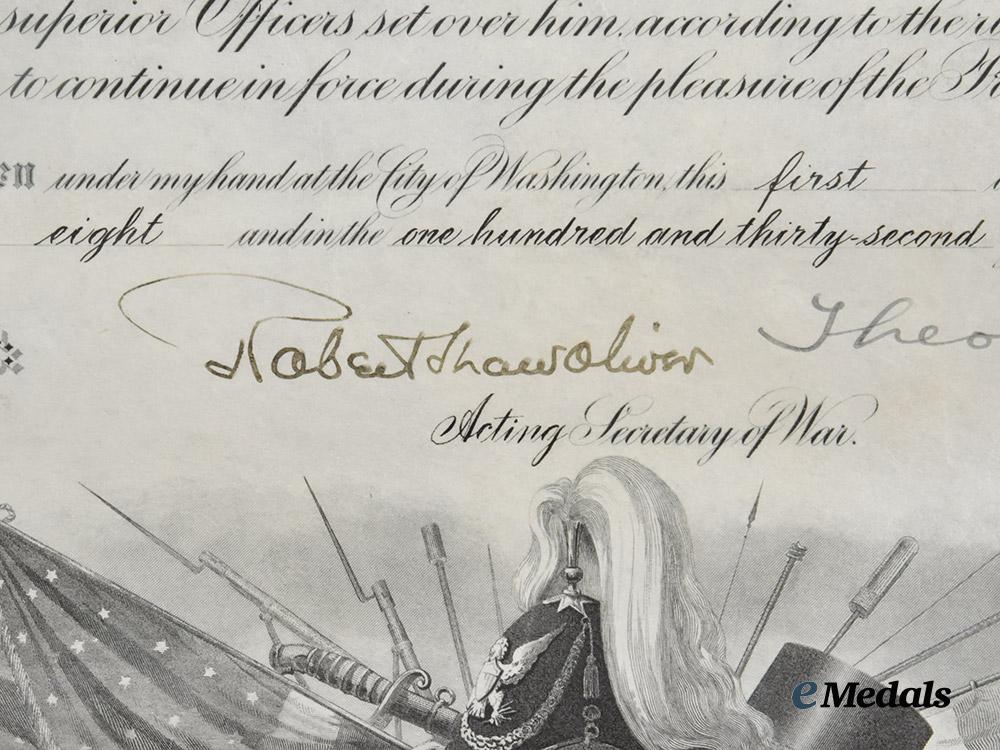 superior Officers set over him, according to the
to continue in force during the pleasure of the
under my hand at the City of Washington, this first
eight and in the one hundred and thirty-second
Robert Shaw Oliver
Theo
Acting Secretary of War.
eMedals